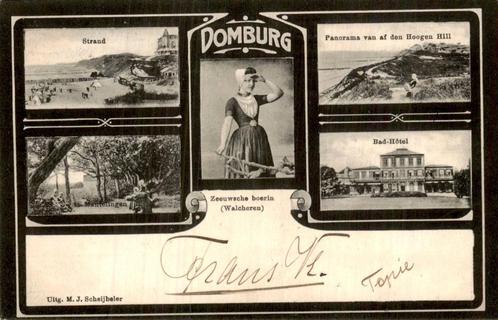 DOMBURG
Strand
Panorama van af den Hoogen Hill
Mantelingen
Bad-Hôtel
Zeeuwsche boerin
(Walcheren)
Frans K.
Uitg. M. J. Scheijbeler